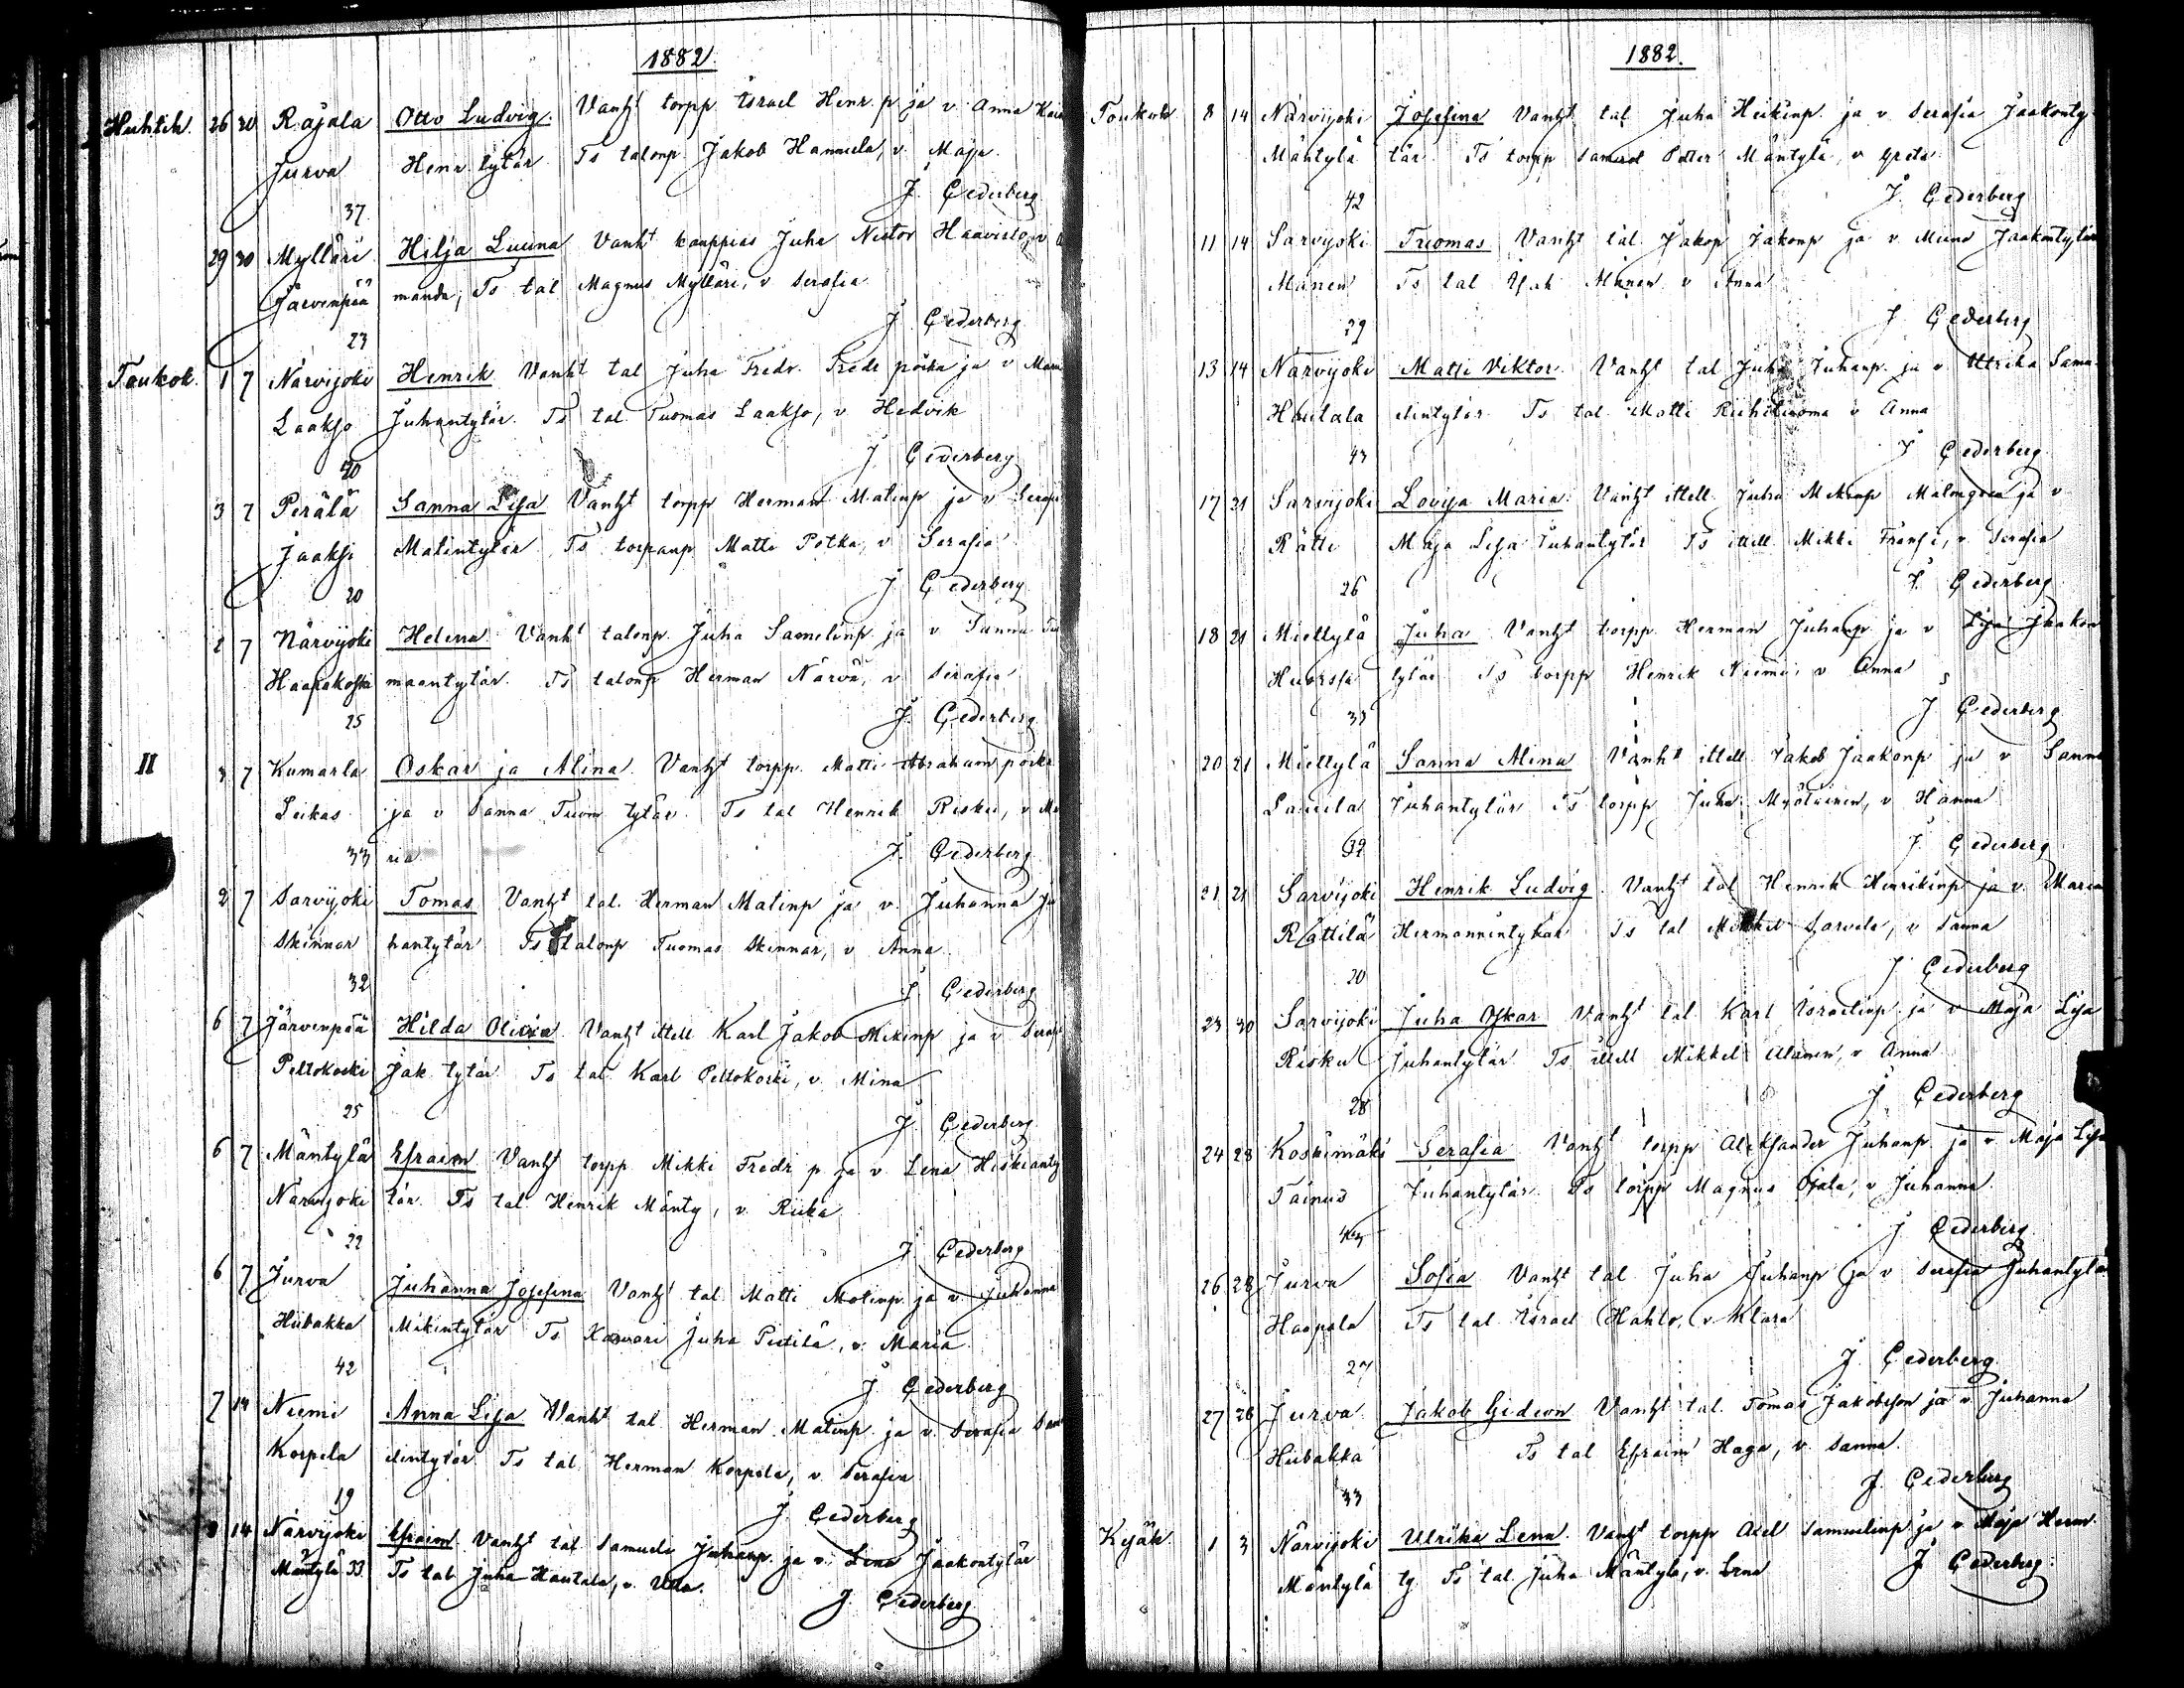 1882.
Huhtik. 26 30 Rajala Otto Ludvig. Vanht torpp. Israel Henr. p. ja v. Anna
Jurva Henr. tytär. Ts talonp. Jakob Hannula, v. Maja.
37 J. Cederberg
29 30 Mylläri Hilja Luuna Vanht kauppias Juha Nestor Haavisto, v.
Järvenpää manda, Ts tal Magnus Mylläri, v Serafia
23 J. Cederberg
Toukok. 1 7 Närvijoki Henrik Vanht tal Juha Fredr. Fredr poika ja v
Laakso Juhantytär. Ts tal. Tuomas Laakso, v. Hedvik
J. Cederberg
3 7 Perälä Sanna Lisa Vanht torpp Herman Matinp ja v
Jaaksi Matintytär, Ts torpanp Matti Potka, v Serafia
20 J. Cederberg
7 Närvijoki Helena Vanht talonp. Juha Samelinp ja v Sanna
Haapakoski maantytär. Ts talonp Herman Närvä, v Serafia
25 J. Cederberg
II 3 7 Kumarla Oskar ja Alina. Vanht torpp. Matti Abraham poika
Leikas ja v Sanna Tuom tytär. Ts tal Henrik Risku, v Ma
33 ria J. Cederberg
2 7 Sarvijoki Tomas Vanht tal. Herman Matinp ja v. Juhanna Ju
Skinnar hantytär Ts talonp Tuomas Skinnar, v Anna
32 J. Cederberg
6 7 Järvenpää Hilda Olivia Vanht ittell Karl Jakob Mikinp ja v
Peltokoski Jak tytär Ts tal. Karl Peltokoski, v. Mina
25 J. Cederberg
6 7 Mäntylä Efraim Vanht torpp Mikki Fredr p ja v Lena Hiskianty
Närvijoki tär. Ts tal Henrik Mänty, v. Riika
22 J. Cederberg
6 7 Jurva Juhanna Josefina Vanht tal Matti Matinp ja v. Juhanna
Hiibakka Mikintytär Ts Juha Pietilä, v. Maria
42 J. Cederberg
7 14 Niemi Anna Lisa Vanht tal Herman Matinp. ja v. Serafia Sam
Korpela elintytär Ts tal Herman Korpela, v. Serafia
19 J. Cederberg
14 Närvijoki Efraim Vanht tal Samuel Juhanp. ja v. Lena Jaakontytär
Mäntylä 33 Ts tal Juha Hautala, v. Ulla. J. Cederberg
1882.
Toukok. 8 14 Närvijoki Josefina Vanht tal Juha Heikinp. ja v Serafia Jaakonty
Mäntylä tär. Ts torpp Mäntylä, v Greta
42 J. Cederberg
11 14 Sarvijoki Tuomas Vanht tal Jakop Jakonp ja v. Jaakontytär
Ts tal v Anna
29 J. Cederberg
13 14 Närvijoki Matti Viktor. Vanht tal Juha Juhanp. ja v Ulrika Samu
Hautala elintytär Ts tal Matti v Anna
43 J. Cederberg
17 21 Sarvijoki Lovisa Maria Vanht ittell Juha Mikinp Malmgren ja v
Rätti Maja Lisa Juhantytär Ts ittell Mikki v. Serafia
26 J. Cederberg
18 21 Miettylä Juha Vanht torpp Herman Juhanp ja v Lisa Jaakon
tytär Ts torpp Henrik Niemi, v Anna
J. Cederberg
20 21 Miettylä Sanna Alina Vanht ittell Jakob Jaakonp ja v Sanna
Laurila Juhantytär Ts torpp Juha v. Hanna
J. Cederberg
21 21 Sarvijoki Henrik Ludvig Vanht tal Henrik Henrikinp ja v. Maria
Rättilä Hermannintytär Ts tal Mikkel Sarvela, v Sanna
20 J. Cederberg
23 30 Sarvijoki Juha Oskar Vanht tal Karl Israelinp ja v Maja Lisa
Risku Juhantytär Ts ittell Mikkel v Anna
28 J. Cederberg
24 28 Koskimäki Serafia Vanht torpp Aleksander Juhanp ja v Maja Lisa
Tainus Juhantytär Ts torpp Magnus Ojala, v Juhanna
J. Cederberg
26 28 Jurva Sofia Vanht tal Juha Juhanp ja v Serafia Juhantytär
Haapala Ts tal Israel Hahto, v Klara
27 J. Cederberg
27 28 Jurva Jakob Gideon Vanht tal. Tomas Jakobsson ja v Juhanna
Hiibakka Ts tal Efraim Haga, v. Sanna.
33 J. Cederberg
Kesäk. 1 3 Närvijoki Ulrika Lena Vanht torpp Axel Samuelinp ja v Maja Herm.
Mäntylä ty. Ts tal. Juha Mäntylä, v. Lena J. Cederberg